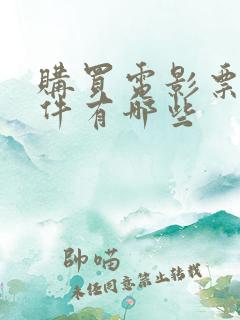 購買電影票
件有哪些
帥喵
未经同意禁止转载